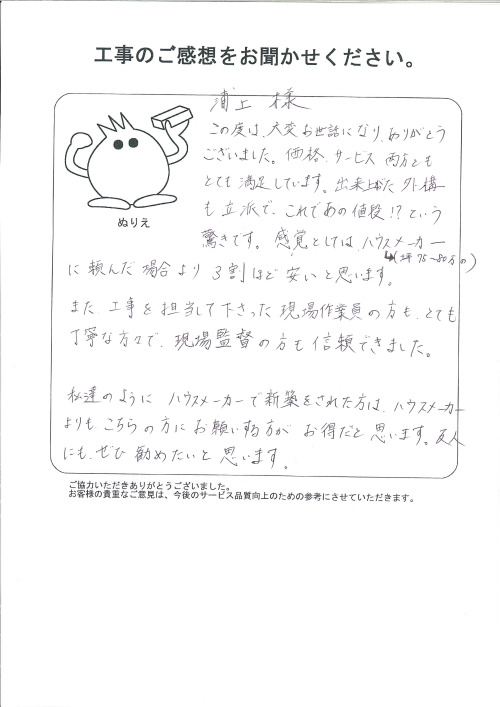 工事のご感想をお聞かせください。
浦上 様
この度は、大変お世話になり、ありがとう
ございました。価格、サービス 両方とも
とても 満足しています。出来上がた 外構
も 立派で、これであの値段!? という
驚きです。感覚としては、ハウスメーカー
(坪75~80万の)
に 頼んだ 場合より 3割ほど 安いと思います。
また、工事を担当して下さった 現場作業員の方も、とても
丁寧な方々で、現場監督の方も信頼できました。
私達のように ハウスメーカーで新築をされた方は、ハウスメーカー
よりも こちらの方に お願いする方が お得だと 思います。友人
にも、ぜひ 勧めたいと 思います。
ぬりえ
ご協力いただきありがとうございました。
お客様の貴重なご意見は、今後のサービス品質向上のための参考にさせていただきます。